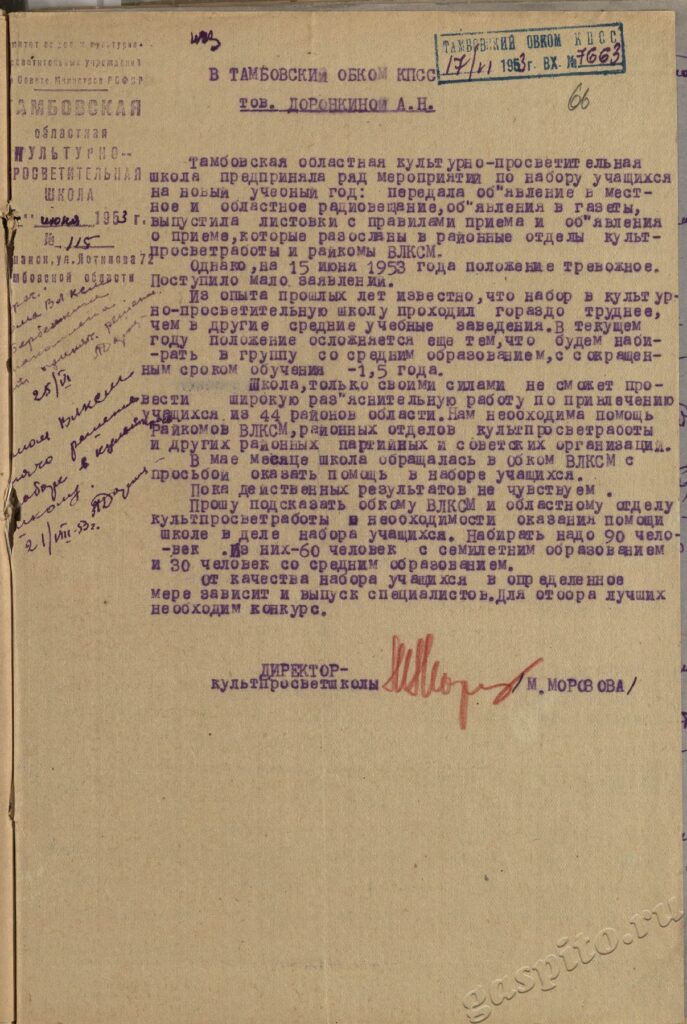 ТАМБОВСКИЙ ОБКОМ КПСС
17/VI 1953 г. ВХ. № 7663
66
В ТАМБОВСКИЙ ОБКОМ КПСС
тов. ДОРОНКИНОЙ А.Н.
Совете Министров РСФСР
ТАМБОВСКАЯ
областная
КУЛЬТУРНО-
ПРОСВЕТИТЕЛЬНАЯ
ШКОЛА
июня 1953 г.
№ 115
области
Тамбовская областная культурно-просветительная
школа предприняла ряд мероприятий по набору учащихся
на новый учебный год: передала об"явление в мест-
ное и областное радиовещание,об"явления в газеты,
выпустила листовки с правилами приема и об"явления
о приеме,которые разосланы в районные отделы культ-
просветработы и райкомы ВЛКСМ.
Однако,на 15 июня 1953 года положение тревожное.
Поступило мало заявлений.
Из опыта прошлых лет известно,что набор в культур-
но-просветительную школу проходил гораздо труднее,
чем в другие средние учебные заведения.В текущем
году положение осложняется еще тем,что будем наби-
-рать в группу со средним образованием,с сокращен-
ным сроком обучения -1,5 года.
Школа,только своими силами не сможет про-
вести широкую раз"яснительную работу по привлечению
учащихся из 44 районов области.Нам необходима помощь
Райкомов ВЛКСМ,районных отделов культпросветработы
и других районных партийных и советских организаций.
В мае месяце школа обращалась в Обком ВЛКСМ с
просьбой оказать помощь в наборе учащихся.
Пока действенных результатов не чувствуем .
Прошу подсказать обкому ВЛКСМ и областному отделу
культпросветработы о необходимости оказания помощи
школе в деле набора учащихся. Набирать надо 90 чело-
-век .Из них-60 человек с семилетним образованием
и 30 человек со средним образованием.
От качества набора учащихся в определенное
мере зависит и выпуск специалистов.Для отбора лучших
необходим конкурс.
25/VI
ВЛКСМ
школу.
21/VIII-53г.
ДИРЕКТОР-
культпросветшколы /М.МОРОЗОВА/
gaspito.ru